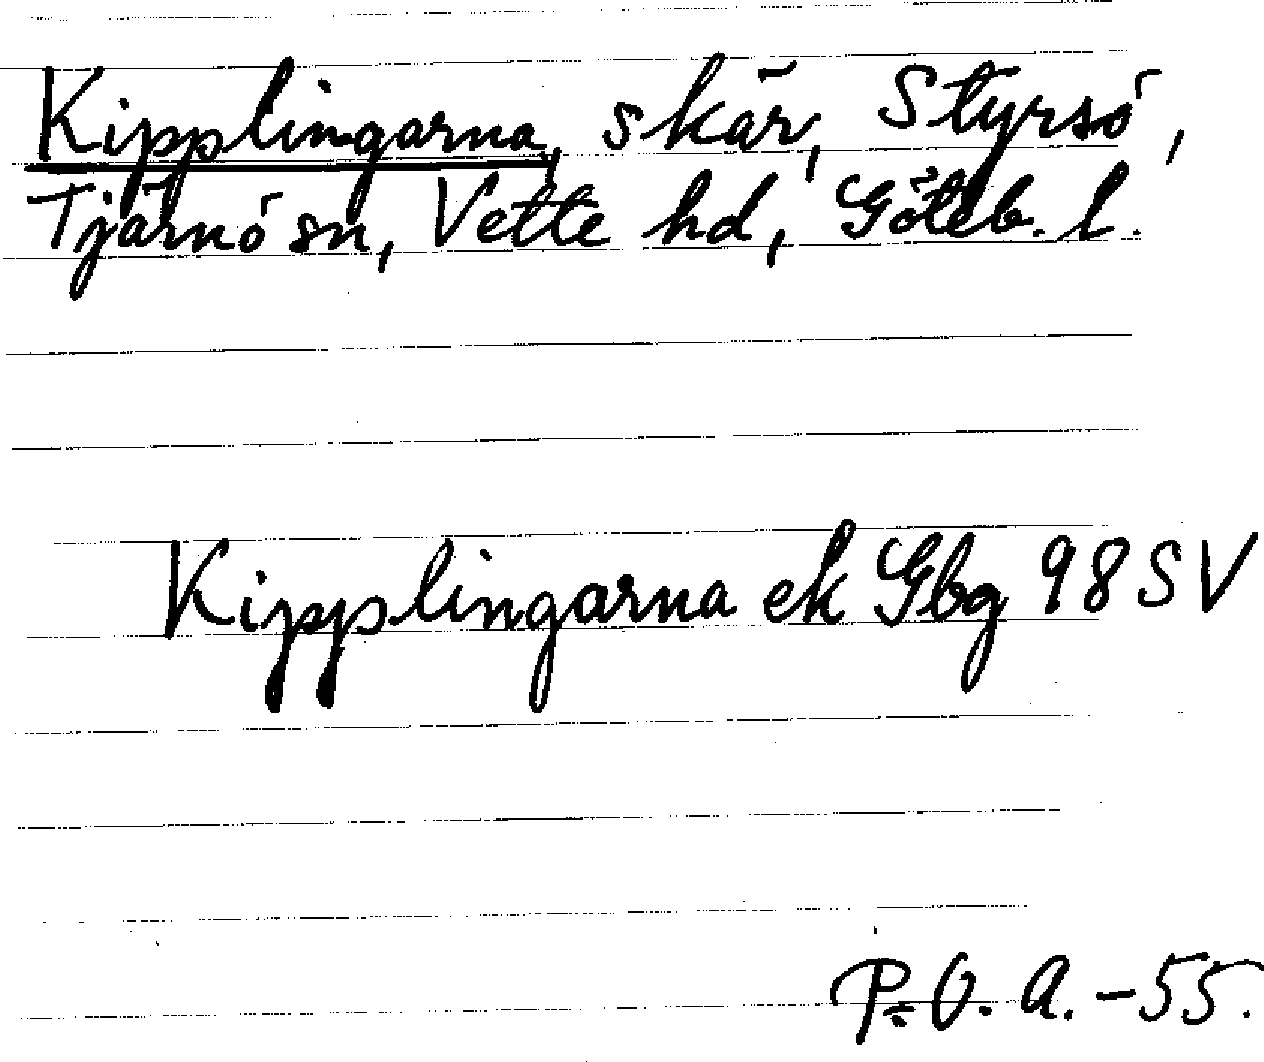 Kipplingarna, skär, Styrsö,
Tjärnö sn, Vette hd, Göteb. l.
Kipplingarna ek Gbg 98 SV
P:O. A. -55.